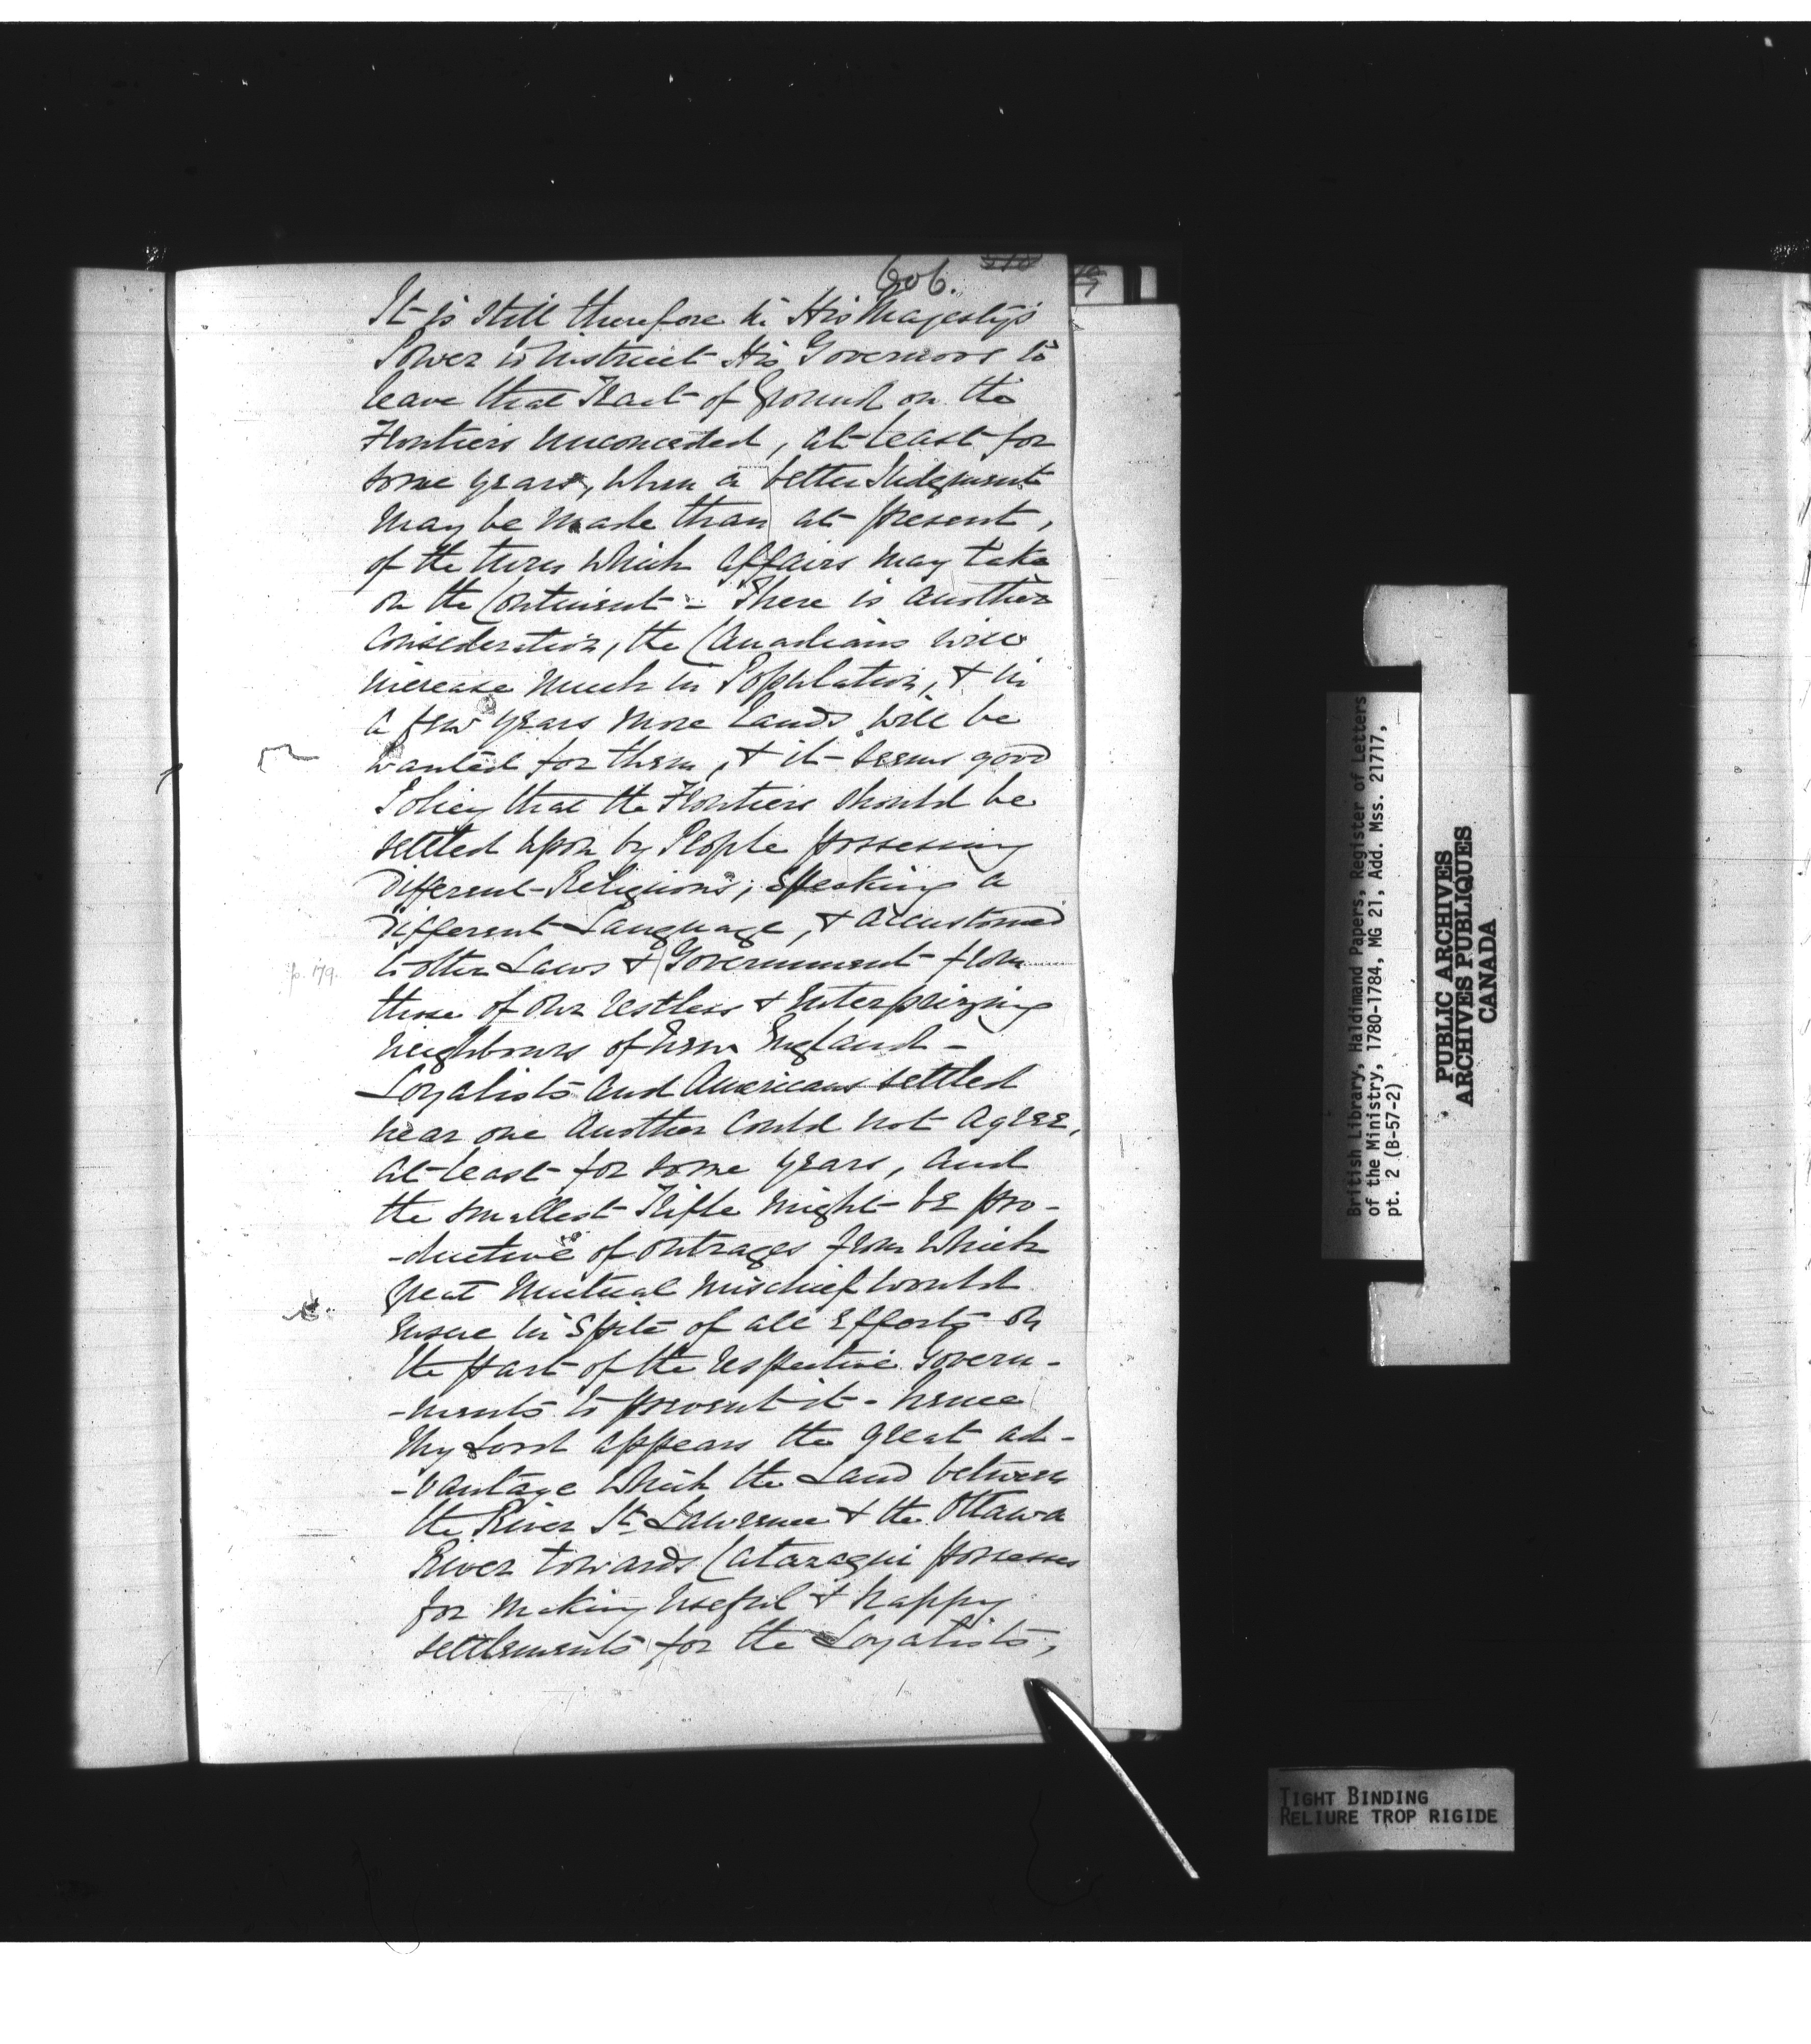 606.
It is still therefore in His Majesty's
Power to instruct His Governors to
leave that Tract of Ground on the
Frontiers unconceded, at least for
some years, when a better Judgment
may be made than at present,
of the turn which affairs may take
on the Continent - There is another
consideration, the Canadians will
increase much in Population, & in
a few years more Lands will be
wanted for them, & it seems good
Policy that the Frontiers should be
settled upon by People possessing
different Religions, speaking a
different Language, & accustomed
p. 179. to other Laws & Government from
those of our restless & enterprizing
neighbours of New England -
Loyalists and Americans settled
near one another could not agree,
at least for some years, and
the smallest Trifle might be pro-
-ductive of outrages from which
great mutual mischief would
ensue in spite of all efforts on
the part of the respective Govern-
-ments to prevent it - hence
My Lord appears the great ad-
-vantage which the Land between
the River St. Lawrence & the Ottawa
River towards Cataraqui possesses
for making useful & happy
settlements for the Loyalists,
British Library, Haldimand Papers, Register of Letters
of the Ministry, 1780-1784, MG 21, Add. Mss. 21717,
pt. 2 (B-57-2)
PUBLIC ARCHIVES
ARCHIVES PUBLIQUES
CANADA
TIGHT BINDING
RELIURE TROP RIGIDE